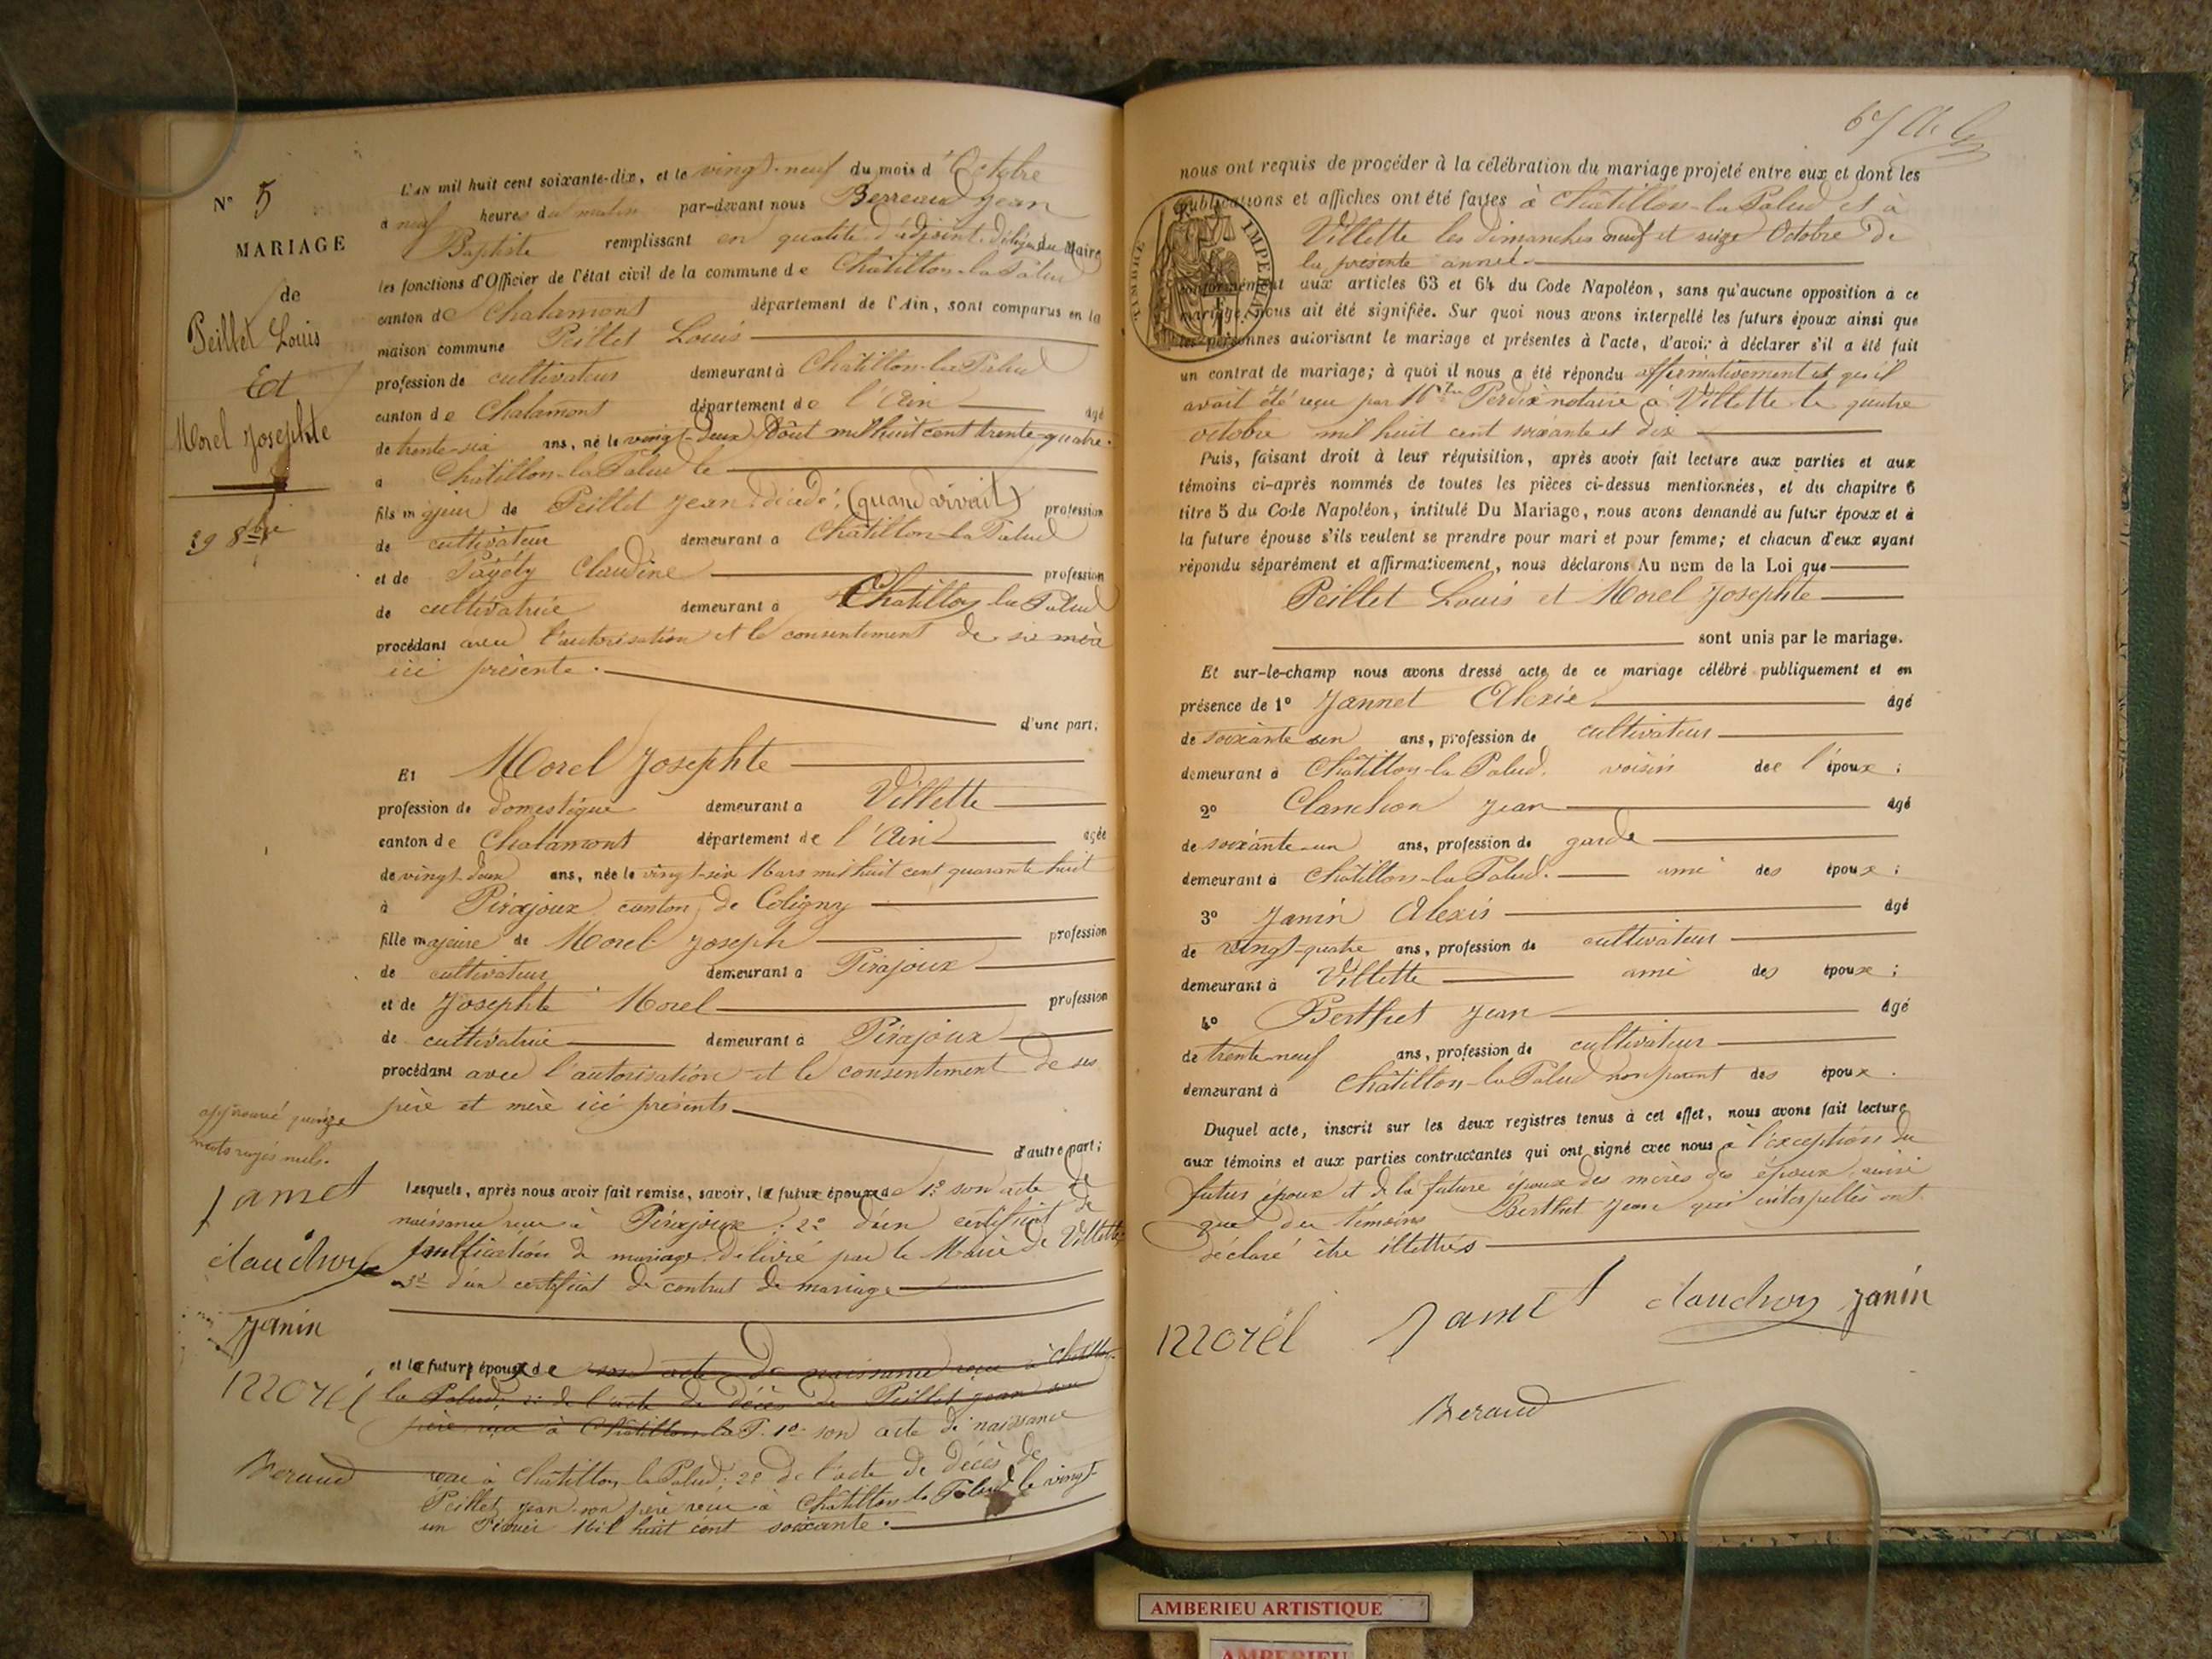 N° 5
MARIAGE
de
Peillet Louis
Et
Morel Josephte
29 8bre
L'AN mil huit cent soixante-dix, et le vingt-neuf du mois d'Octobre
à neuf heures du matin par-devant nous Berreaud Jean
Baptiste remplissant en qualité d'adjoint délégué du Maire
les fonctions d'Officier de l'état civil de la commune de Châtillon-la-Palud
canton de Chalamont département de l'Ain, sont comparus en la
maison commune Peillet Louis
profession de cultivateur demeurant à Châtillon-la-Palud
canton de Chalamont département de l'Ain âgé
de trente-six ans, né le vingt-deux Août mil huit cent trente-quatre
à Châtillon-la-Palud le
fils majeur de Peillet Jean décédé; (quand vivait) profession
de cultivateur demeurant à Châtillon-la-Palud
et de Payéty Claudine profession
de cultivatrice demeurant à Châtillon la Palud
procédant avec l'autorisation et le consentement de sa mère
ici présente.
d'une part;
Et Morel Josephte
profession de domestique demeurant à Villette
canton de Chalamont département de l'Ain âgée
de vingt-deux ans, née le vingt-six Mars mil huit cent quarante huit
à Pirajoux canton de Coligny
fille majeure de Morel Joseph profession
de cultivateur demeurant à Pirajoux
et de Josephte Morel profession
de cultivatrice demeurant à Pirajoux
procédant avec l'autorisation et le consentement de ses
père et mère ici présents
d'autre part;
approuvé quinze
mots rayés nuls.
Jamet
claudhon
Janin
Morel
Beraud
lesquels, après nous avoir fait remise, savoir, la future épouse de 1° son acte de
naissance reçu à Pirajoux; 2° d'un certificat de
publication de mariage délivré par le Maire de Villette
3° d'un certificat de contrat de mariage
et le futur époux de son acte de naissance reçu à Châtillon
la Palud; 2° de l'acte de décès de Peillet Jean son
père reçu à Châtillon-la P. 1° son acte de naissance
reçu à Châtillon-la-Palud; 2° de l'acte de décès de
Peillet Jean son père reçu à Châtillon la Palud le vingt-
un Février Mil huit cent soixante.
67
nous ont requis de procéder à la célébration du mariage projeté entre eux et dont les
publications et affiches ont été faites à Châtillon-la-Palud et à
Villette les dimanches neuf et seize Octobre de
la présente année
TIMBRE IMPERIAL
conformément aux articles 63 et 64 du Code Napoléon, sans qu'aucune opposition à ce
mariage nous ait été signifiée. Sur quoi nous avons interpellé les futurs époux ainsi que
les personnes autorisant le mariage et présentes à l'acte, d'avoir à déclarer s'il a été fait
un contrat de mariage; à quoi il nous a été répondu affirmativement et qu'il
avait été reçu par Mtre Perdrix notaire à Villette le quatre
octobre mil huit cent soixante et dix
Puis, faisant droit à leur réquisition, après avoir fait lecture aux parties et aux
témoins ci-après nommés de toutes les pièces ci-dessus mentionnées, et du chapitre 6
titre 5 du Code Napoléon, intitulé Du Mariage, nous avons demandé au futur époux et à
la future épouse s'ils veulent se prendre pour mari et pour femme; et chacun d'eux ayant
répondu séparément et affirmativement, nous déclarons Au nom de la Loi que
Peillet Louis et Morel Josephte
sont unis par le mariage.
Et sur-le-champ nous avons dressé acte de ce mariage célébré publiquement et en
présence de 1° Jannet Alexis âgé
de soixante un ans, profession de cultivateur
demeurant à Châtillon-la Palud. voisin de l'époux;
2° Clanchon Jean âgé
de soixante-un ans, profession de garde
demeurant à Châtillon-la Palud. ami des époux;
3° Janin Alexis âgé
de vingt-quatre ans, profession de cultivateur
demeurant à Villette ami des époux;
4° Berthet Jean âgé
de trente-neuf ans, profession de cultivateur
demeurant à Châtillon-la Palud non parent des époux.
Duquel acte, inscrit sur les deux registres tenus à cet effet, nous avons fait lecture
aux témoins et aux parties contractantes qui ont signé avec nous à l'exception du
futur époux et de la future épouse des mères des époux, ainsi
que du témoins Berthet Jean qui interpellés ont
déclaré être illettrés
Morel Jamet claudhon Janin
Beraud
AMBERIEU ARTISTIQUE
AMBERIEU